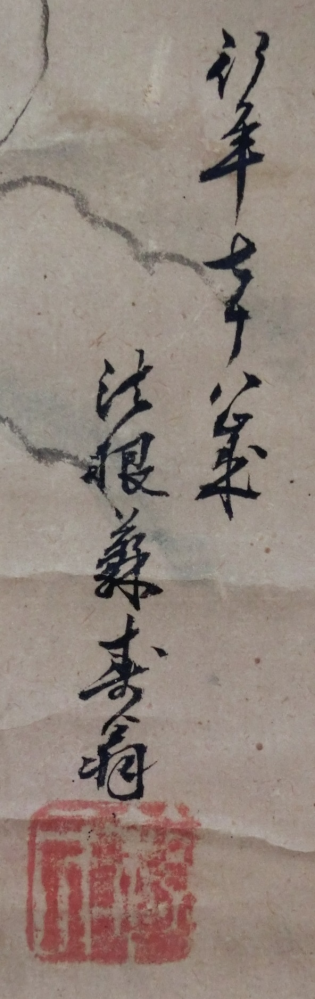 行年七十八歳
法眼蘇寿翁